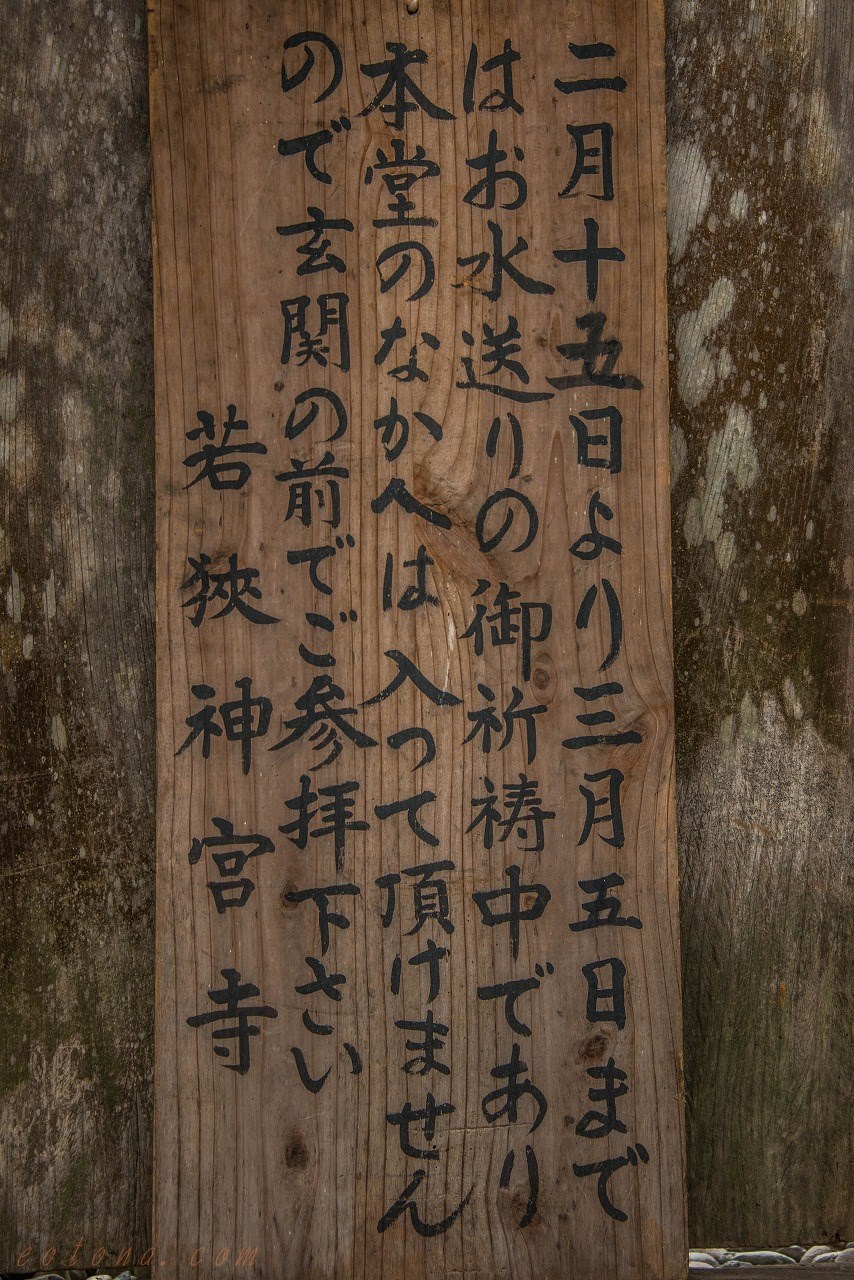 二月十五日より三月五日まで
はお水送りの御祈祷中であり
本堂のなかへは入って頂けません
ので玄関の前でご参拝下さい
若狹神宮寺
eotona.com